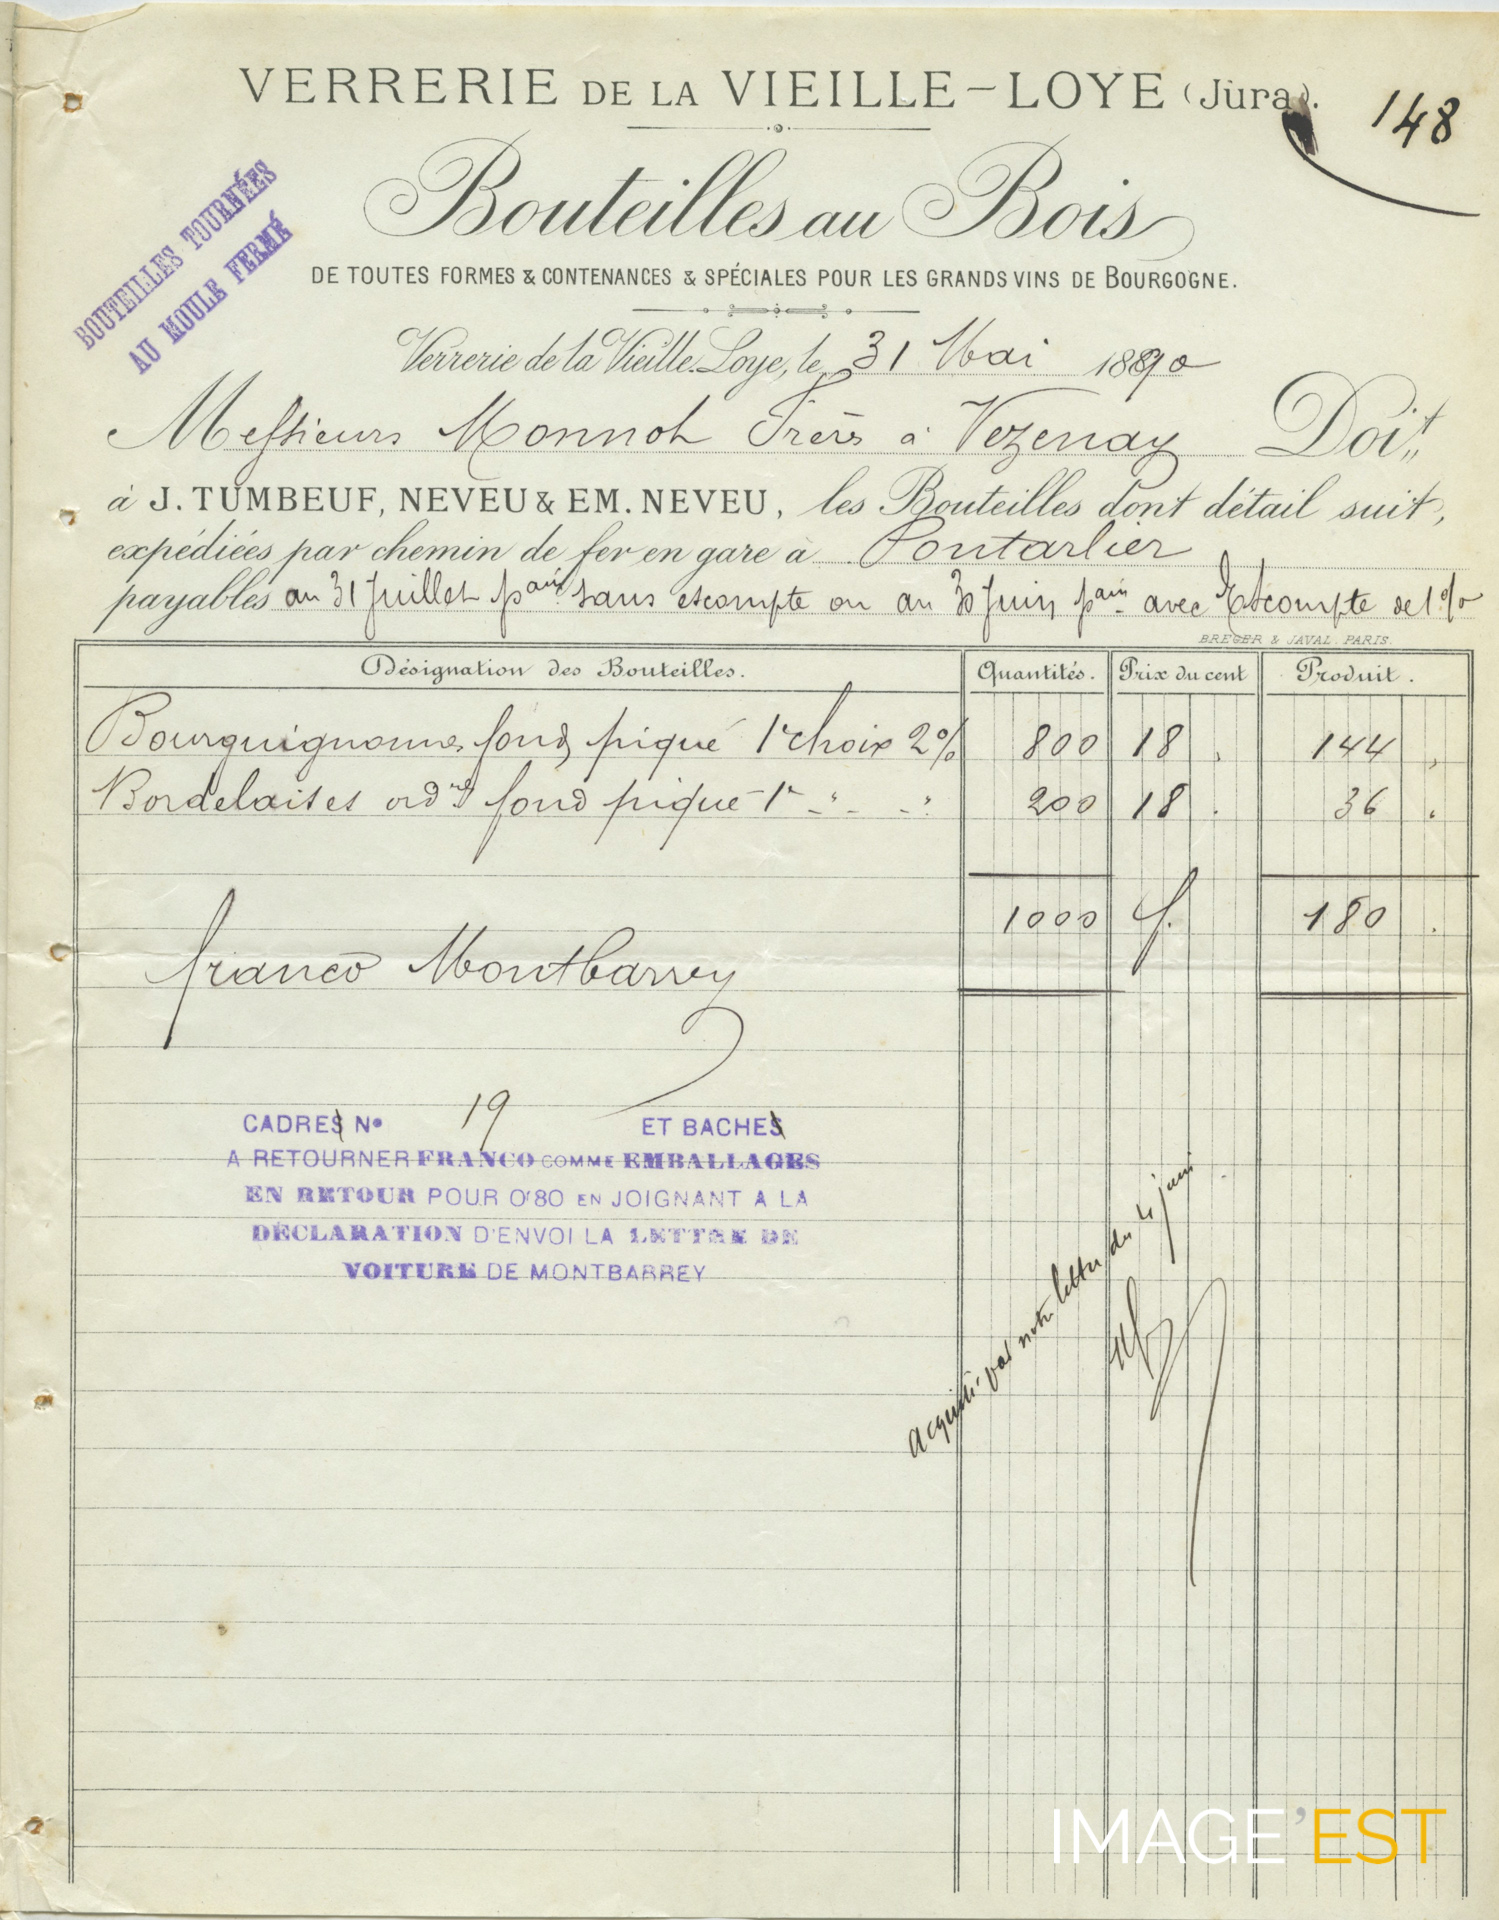 VERRERIE DE LA VIEILLE-LOYE (Jura).
148
BOUTEILLES TOURNÉES
AU MOULE FERMÉ
Bouteilles au Bois
DE TOUTES FORMES & CONTENANCES & SPÉCIALES POUR LES GRANDS VINS DE BOURGOGNE.
Verrerie de la Vieille-Loye, le 31 Mai 1890
Messieurs Monnot Frères à Vezenay Doit
à J. TUMBEUF, NEVEU & EM. NEVEU, les Bouteilles dont détail suit,
expédiées par chemin de fer en gare à Pontarlier
payables au 31 Juillet pain sans escompte ou au 30 Juin pain avec Escompte de 1 %
BREGER & JAVAL. PARIS.
Désignation des Bouteilles. Quantités. Prix du cent Produit.
Bourguignonnes fond piqué 1r choix 2% 800 18 , 144 ,
Bordelaises ordres fond piqué 1r - " - - " 200 18 . 36 .
1000 f. 180 .
franco Montbarrey
CADRES No 19 ET BACHES
A RETOURNER FRANCO COMME EMBALLAGES
EN RETOUR POUR 0f80 EN JOIGNANT A LA
DÉCLARATION D'ENVOI LA LETTRE DE
VOITURE DE MONTBARREY
acquitté par notre lettre du 4 juin
IMAGE'EST